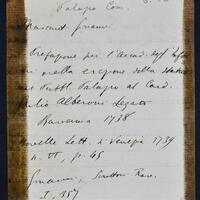 Palazzo Com.
Marcant. Ginanni
Prefazione per l'Accad. degl' Infor
mi nella erezione della statua
nel Pubbl. Palazzo al Card.
Giulio Alberoni Legato
Ravenna 1738
Novelle Lett. di Venezia 1739
n. VI, p. 45
Ginanni, Scrittori Rav.
I, 357